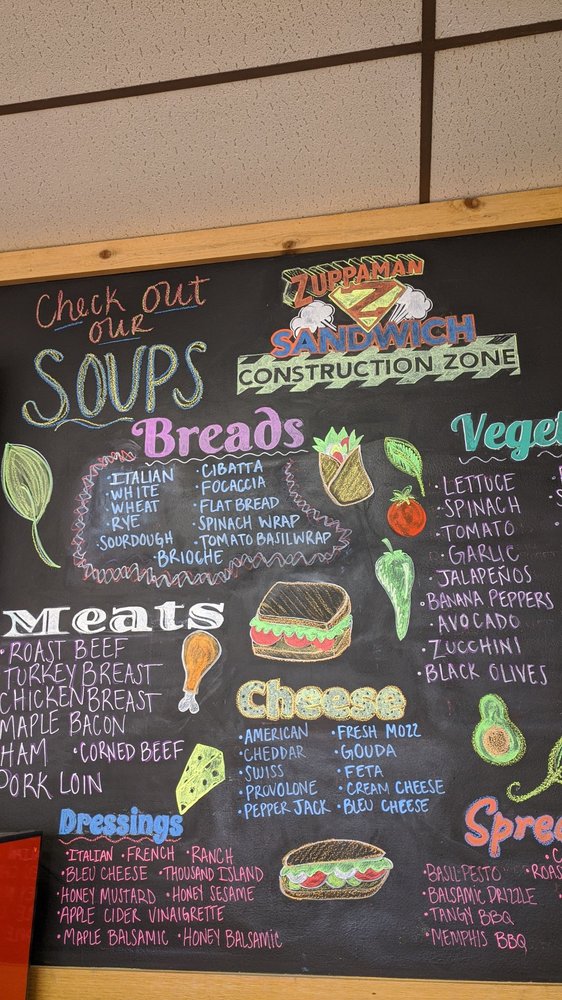 Check out
our
SOUPS
ZUPPAMAN
Z
SANDWICH
CONSTRUCTION ZONE
Breads
· ITALIAN
· WHITE
· WHEAT
· RYE
· SOURDOUGH
· CIBATTA
· FOCACCIA
· FLAT BREAD
· SPINACH WRAP
· TOMATO BASIL WRAP
· BRIOCHE
Veget
· LETTUCE
· SPINACH
· TOMATO
· GARLIC
· JALAPEÑOS
· BANANA PEPPERS
· AVOCADO
· ZUCCHINI
· BLACK OLIVES
Meats
· ROAST BEEF
TURKEY BREAST
CHICKEN BREAST
MAPLE BACON
HAM · CORNED BEEF
PORK LOIN
Cheese
· AMERICAN
· CHEDDAR
· SWISS
· PROVOLONE
· PEPPER JACK
· FRESH MOZZ
· GOUDA
· FETA
· CREAM CHEESE
· BLEU CHEESE
Dressings
· ITALIAN · FRENCH · RANCH
· BLEU CHEESE · THOUSAND ISLAND
· HONEY MUSTARD · HONEY SESAME
· APPLE CIDER VINAIGRETTE
· MAPLE BALSAMIC · HONEY BALSAMIC
Sprea
· BASIL PESTO
· BALSAMIC DRIZZLE
· TANGY BBQ
· MEMPHIS BBQ
· ROAS